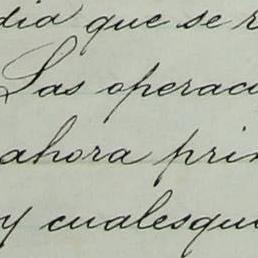 dia que se r
Las operaci
ahora prin
y cualesqui